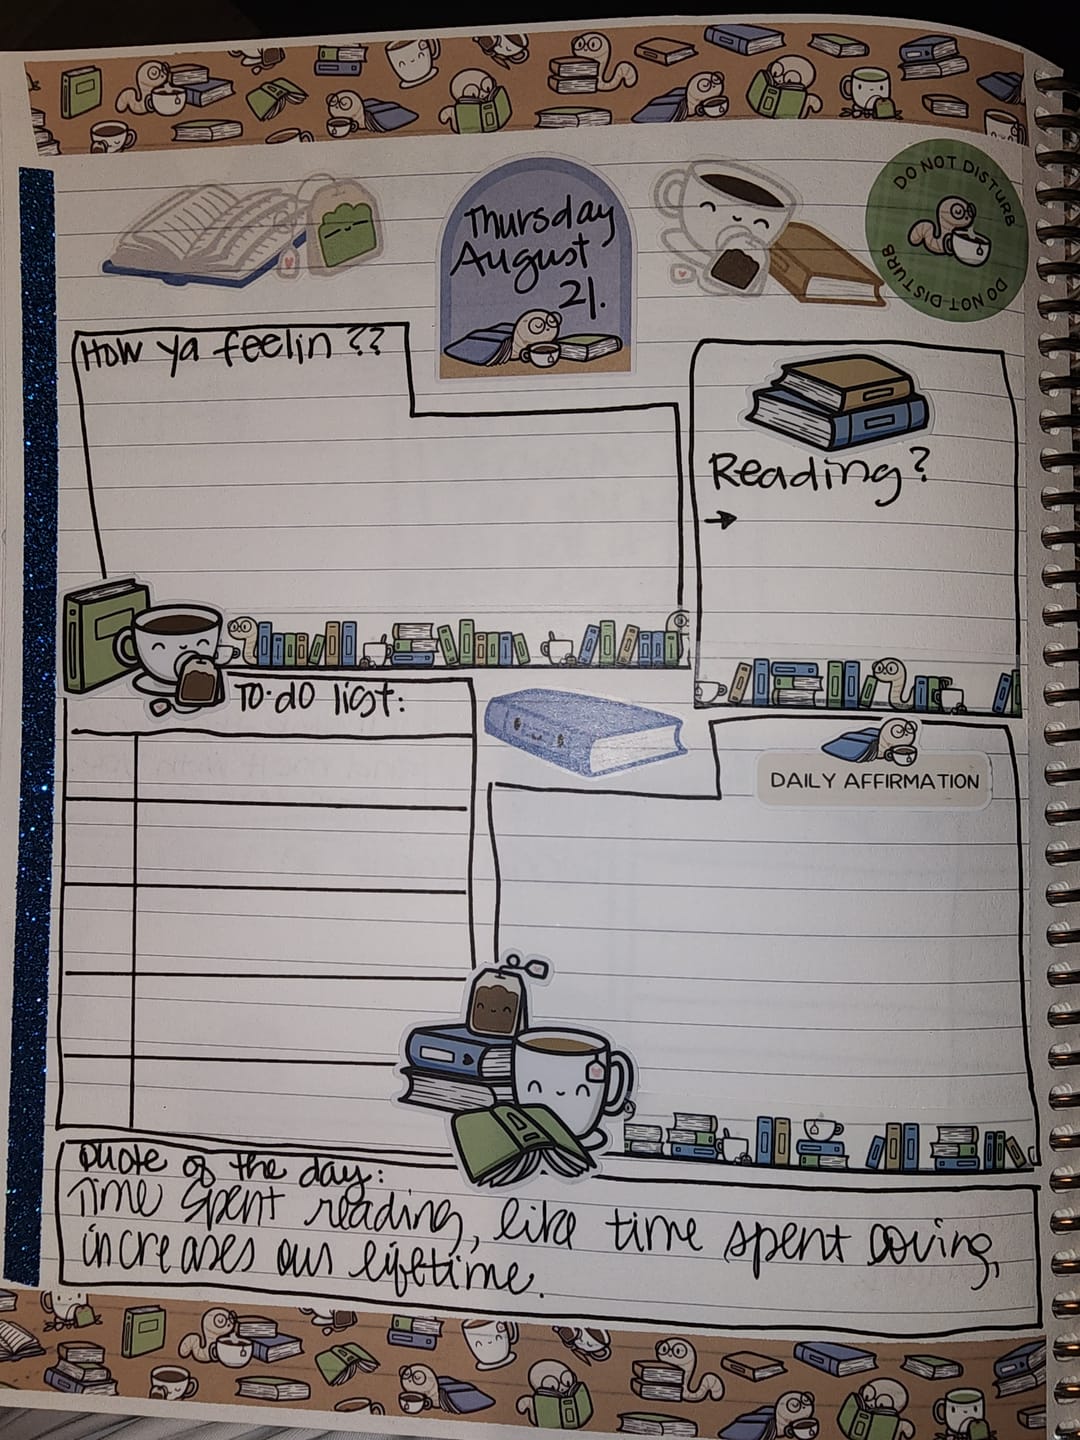 Thursday
August
21.
DO NOT DISTURB
DO NOT DISTURB
How ya feelin ??
Reading?
→
To-do list:
DAILY AFFIRMATION
Quote of the day:
Time spent reading, like time spent loving,
increases our lifetime.